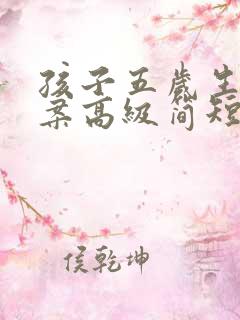 孩子五歲生
案高級简短
侯乾坤